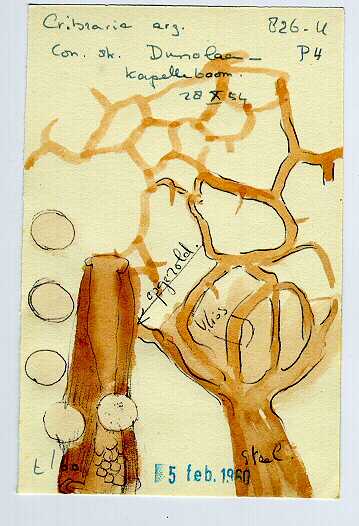 Cribraria arg. 826-U
Con. sk. Dunolaa- P4
Kapelleboom.
28 X 54
opgerold.
Vlies
Steel.
5 feb. 1960